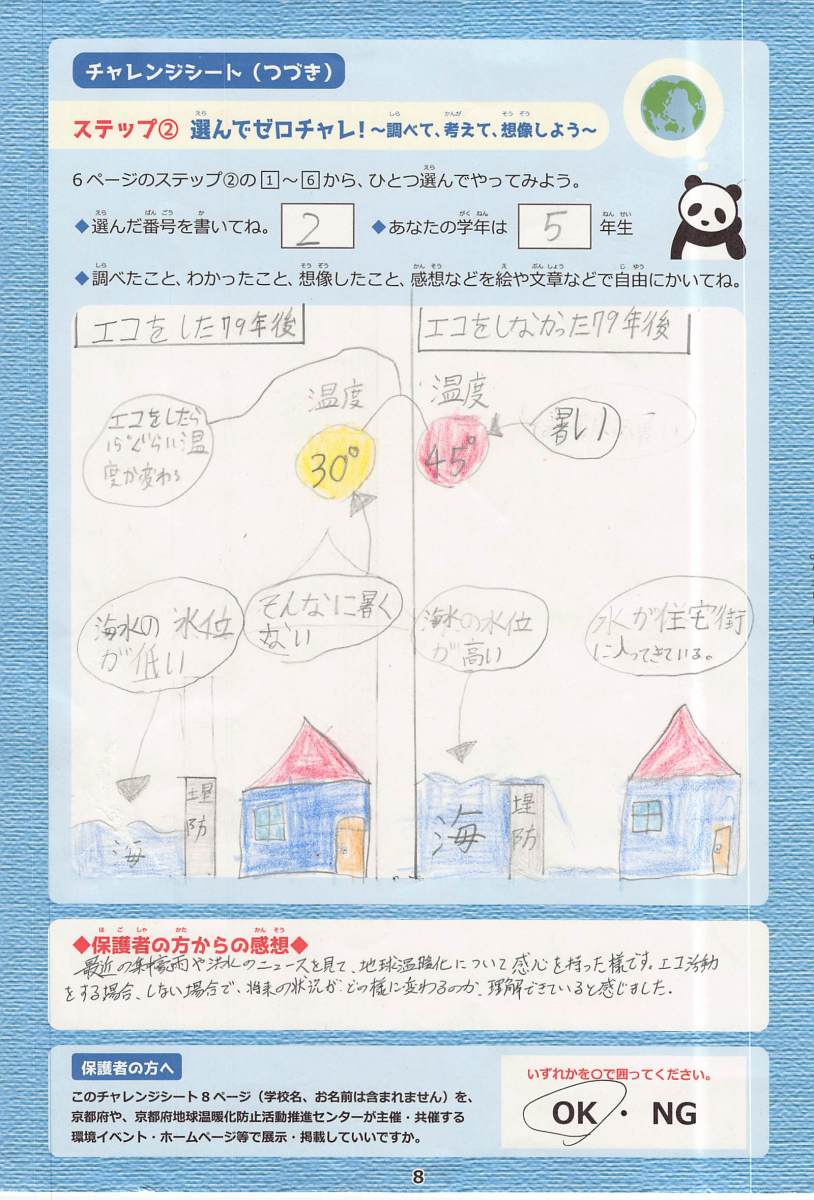 チャレンジシート（つづき）
ステップ② 選んでゼロチャレ！～調べて、考えて、想像しよう～
6ページのステップ②の1～6から、ひとつ選んでやってみよう。
◆選んだ番号を書いてね。 2 ◆あなたの学年は 5 年生
◆調べたこと、わかったこと、想像したこと、感想などを絵や文章などで自由にかいてね。
エコをした79年後
エコをしなかった79年後
エコをしたら
15°ぐらい温
度が変わる
温度
30°
温度
45°
暑い
海水の水位
が低い
そんなに暑く
ない
海水の水位
が高い
水が住宅街
に入ってきている。
海
堤防
海
堤防
◆保護者の方からの感想◆
最近の集中豪雨や洪水のニュースを見て、地球温暖化について感心を持った様です。エコ活動
をする場合、しない場合で、将来の状況が、どの様に変わるのか、理解できていると感じました.
保護者の方へ
このチャレンジシート8ページ（学校名、お名前は含まれません）を、
京都府や、京都府地球温暖化防止活動推進センターが主催・共催する
環境イベント・ホームページ等で展示・掲載していいですか。
いずれかを○で囲ってください。
OK ・ NG
8